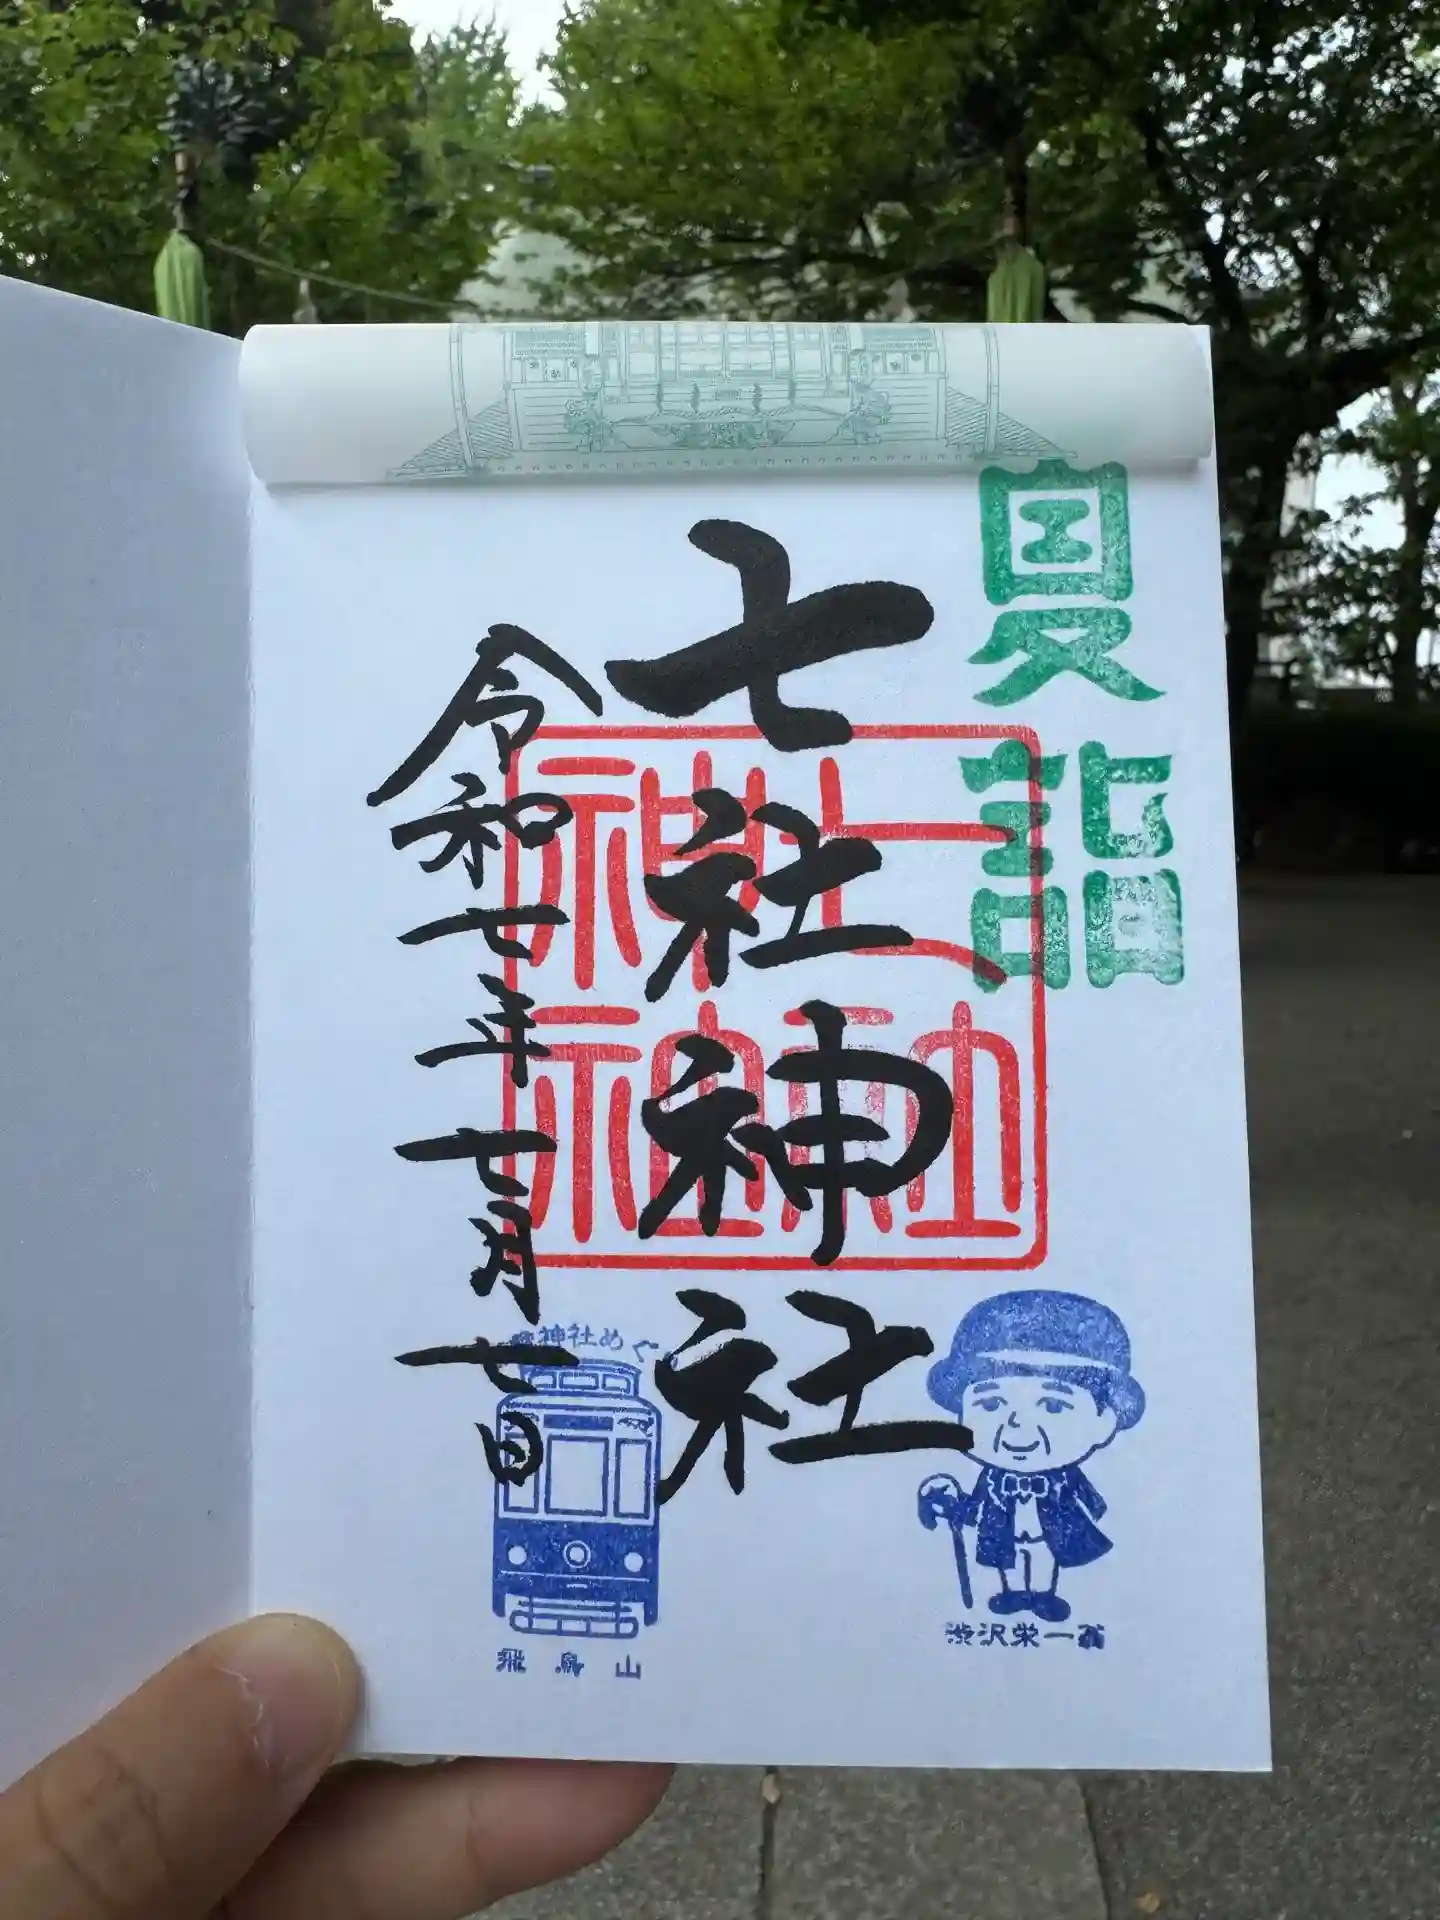 夏詣
七社神社
七社神社
令和七年七月七日
神社めぐり
飛鳥山
渋沢栄一翁